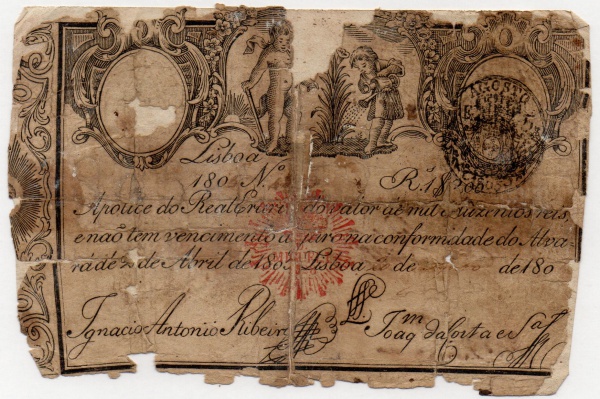 Lisboa
180 Nº Rˢ 1$200
Apolice do Real Erari do valor de mil duzentos reis
e naõ tem vencimento juro na conformidade do Alva
rá de 2 de Abril de 1805 Lisboa de de 180
Ignacio Antonio Ribeiro Joaqᵐ da Costa e Sᵃ
AGOSTO